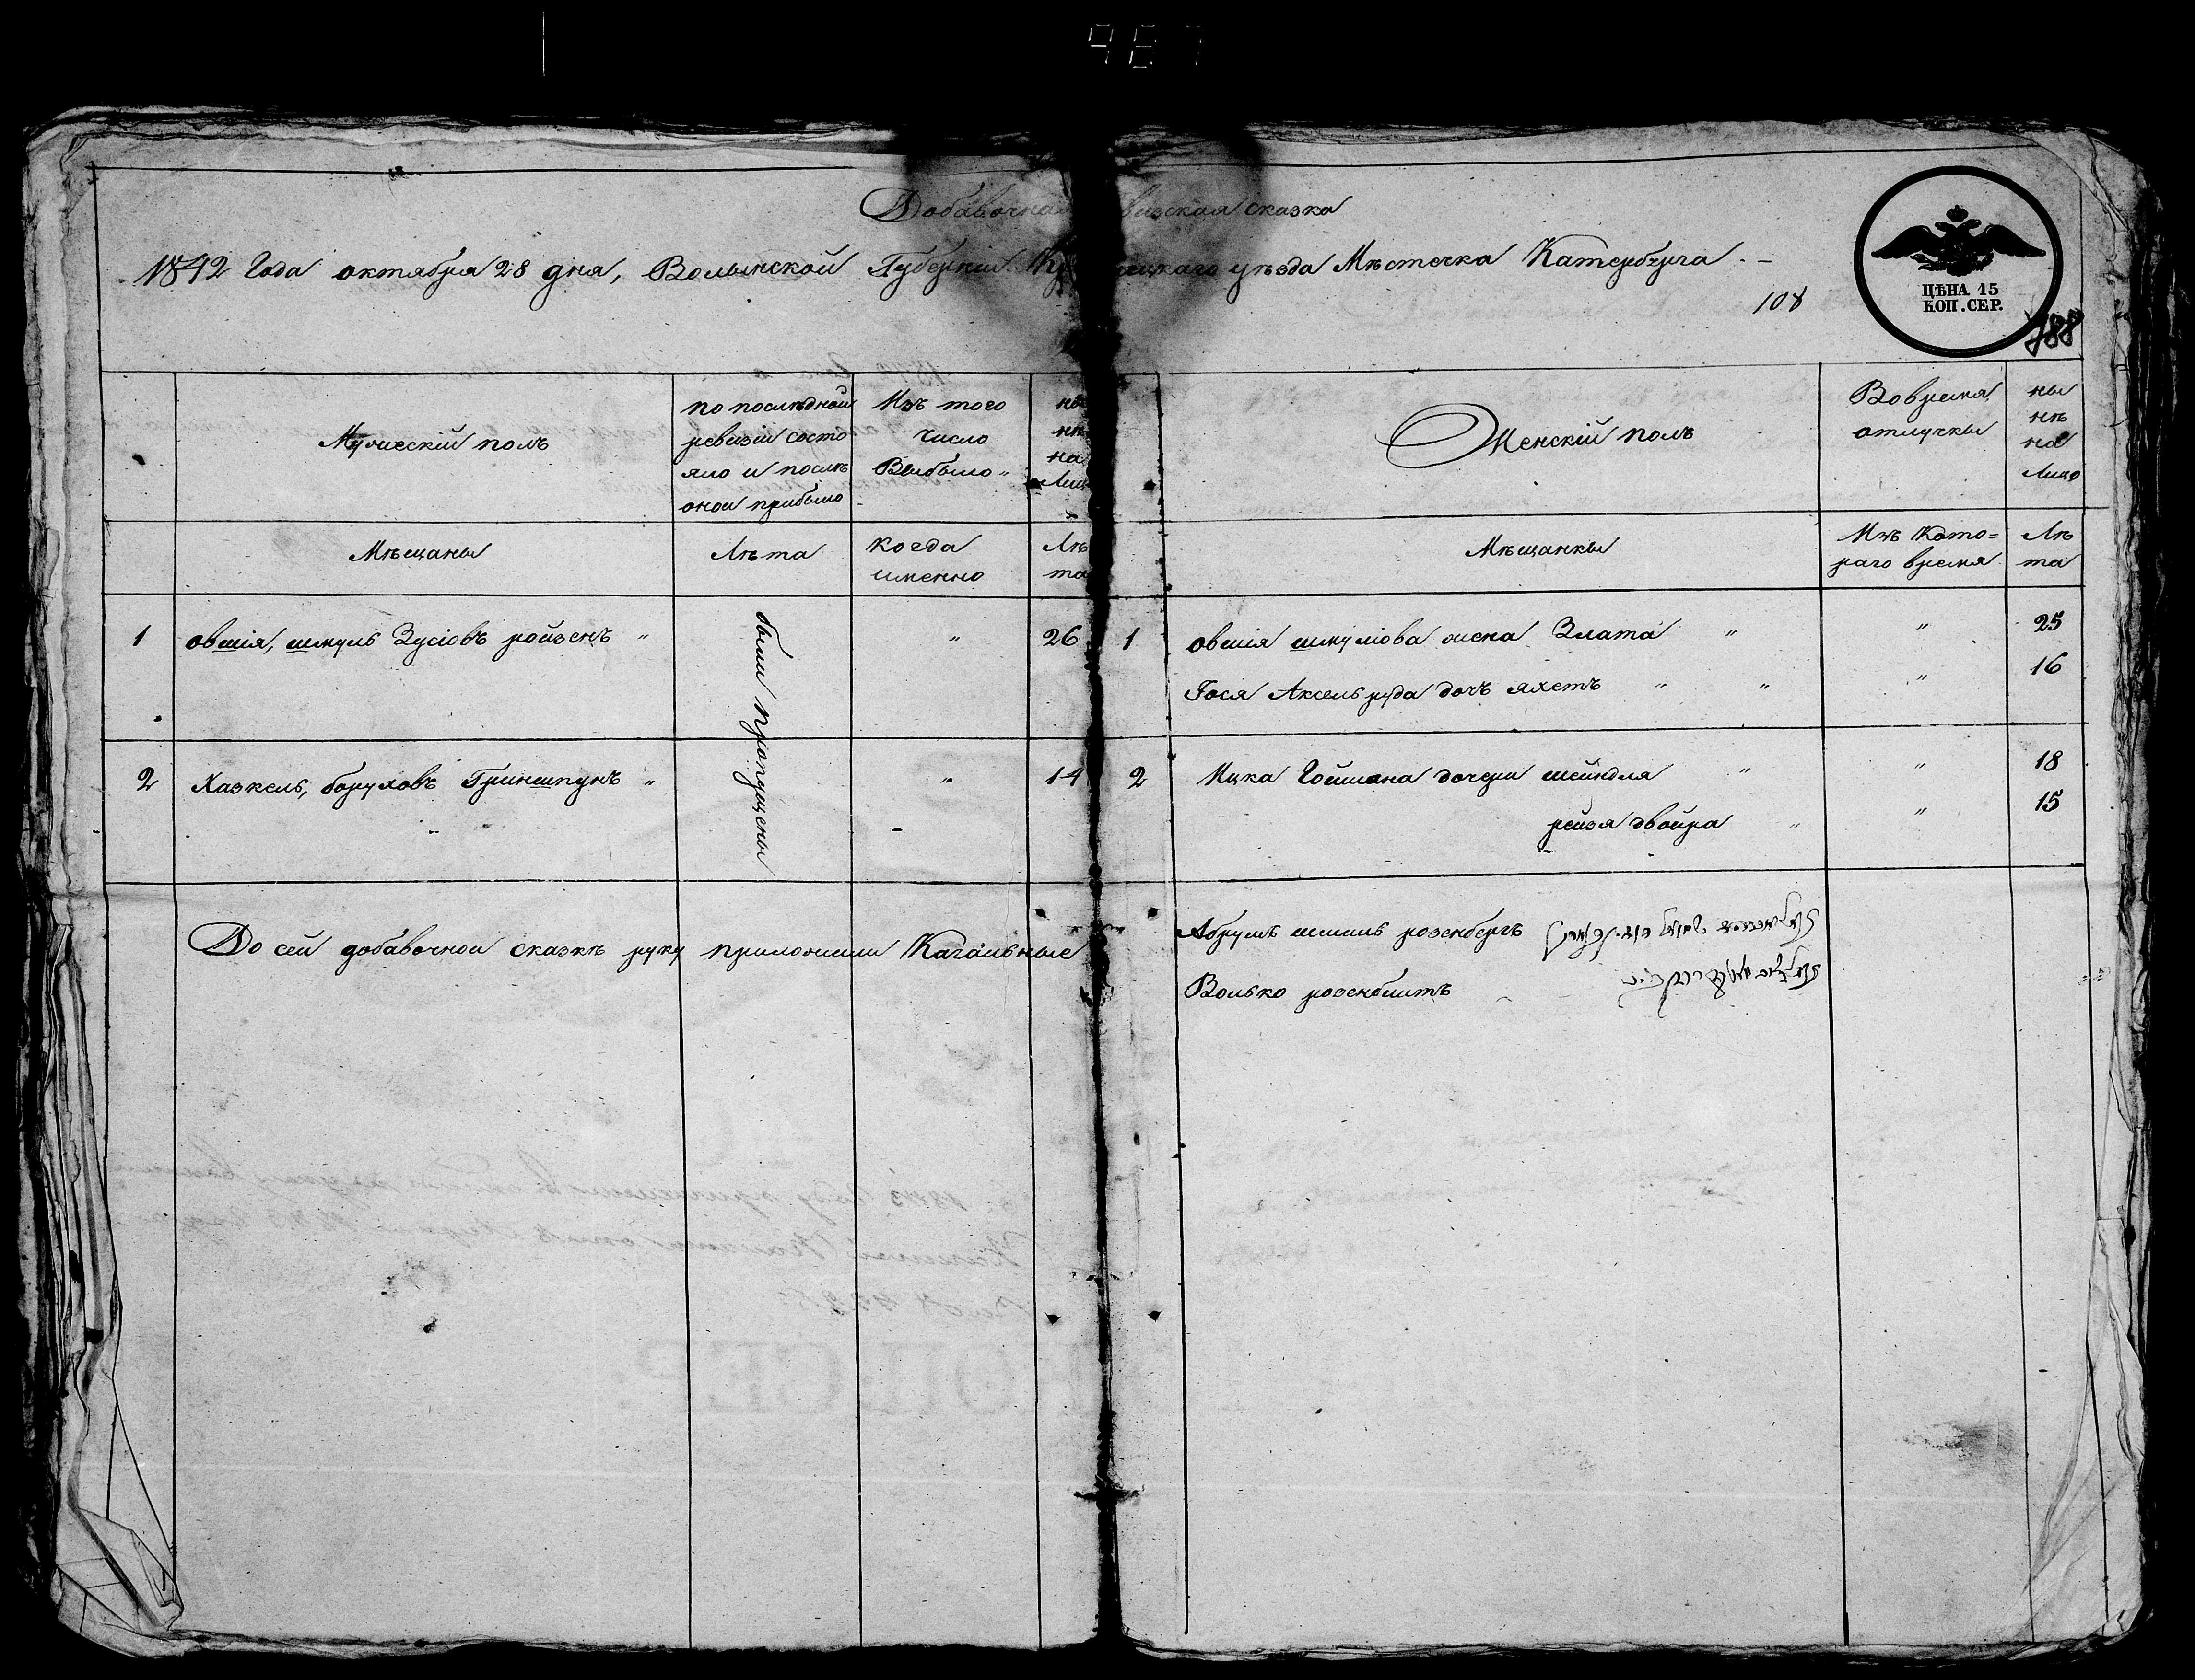 Добавочная ревизская сказка
1842 Года октября 28 дня, Волынской Губернии Кременецкаго уѣзда Мѣстечка Катербурга. –
108
ЦѢНА 15
КОП. СЕР.
788
Мужескій полъ
по послѣдной
ревизіи состо
яло и послѣ
оной прибыло
Изъ того
число
Выбыло
ны
нѣ
на
Лицо
Женскій полъ
Во время
отлучки
ны
нѣ
на
Лицо
Мѣщаны
Лѣта
когда
именно
Лѣ
та
Мѣщанки
Изъ Кото=
раго время
Лѣ
та
были пропущены
1 овшія, шмуль Зусіовъ ройзенъ " " 26
1 овшія шмуліова жена Злата " " 25
Гося Аксельруда дочъ яхетъ " " " 16
2 Хаскель, боруховъ Гриншпунъ " " 14
2 Ицка Гойшмана дочери шейндля " " 18
рейзя двойра " " 15
До сей добавочной сказкѣ руку приложили Кагальные
Абрумъ шмиль розенбергъ
Волько розенблитъ